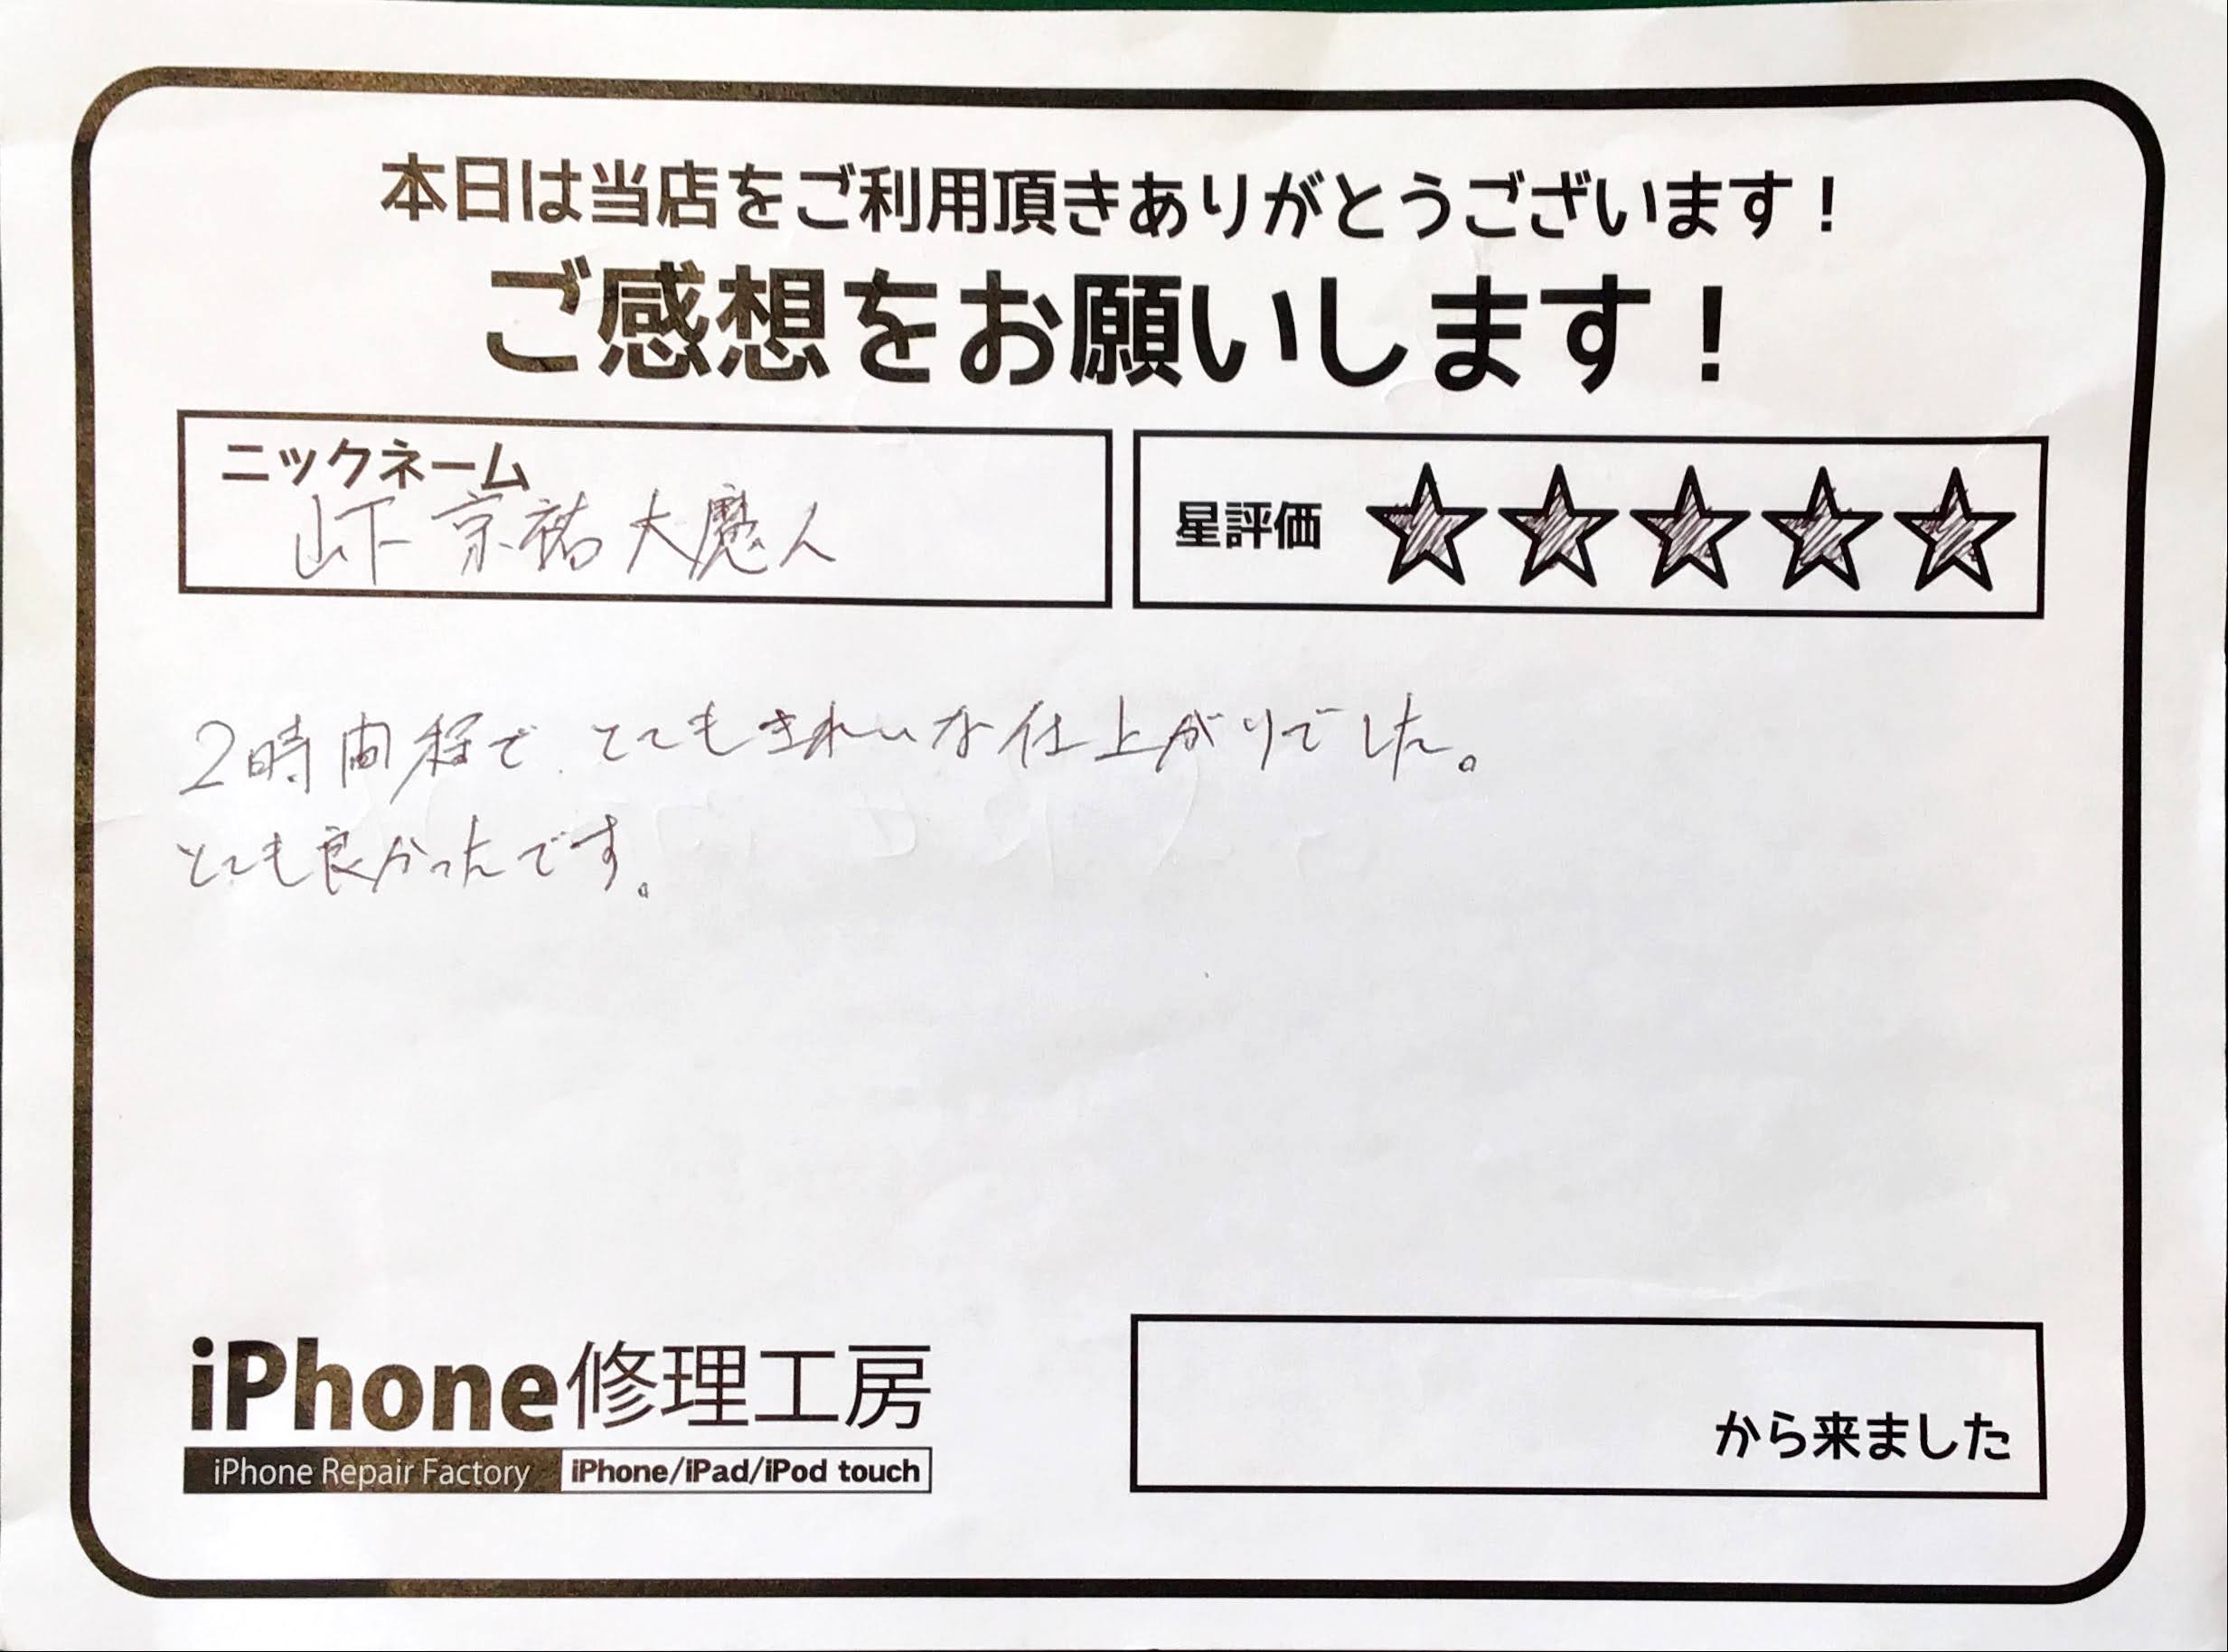 本日は当店をご利用頂きありがとうございます！
ご感想をお願いします！
ニックネーム
山下京祐大魔人
星評価
2時間程で、とてもきれいな仕上がりでした。
とても良かったです。
iPhone修理工房
iPhone Repair Factory iPhone/iPad/iPod touch
から来ました